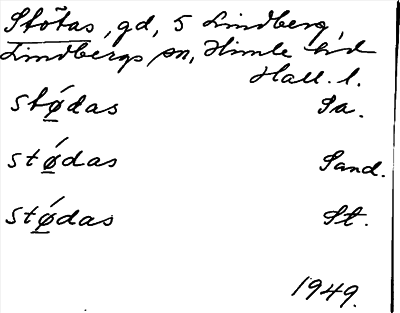 Stötas, gd, 5 Lindberg,
Lindbergs sn, Himle hd
Hall. l.
stǿ̲das Sa.
stǿ̲das Sand.
stǿ̲das St.
1949.